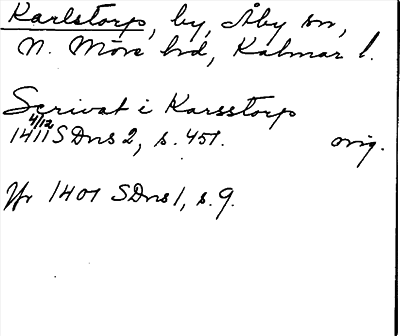 Karlstorp, by, Åby sn,
N. Möre hd, Kalmar l.
Scrivat i Karsstorp
4/12
1411 SDns 2, s. 451. orig.
Jfr 1401 SDns 1, s. 9.